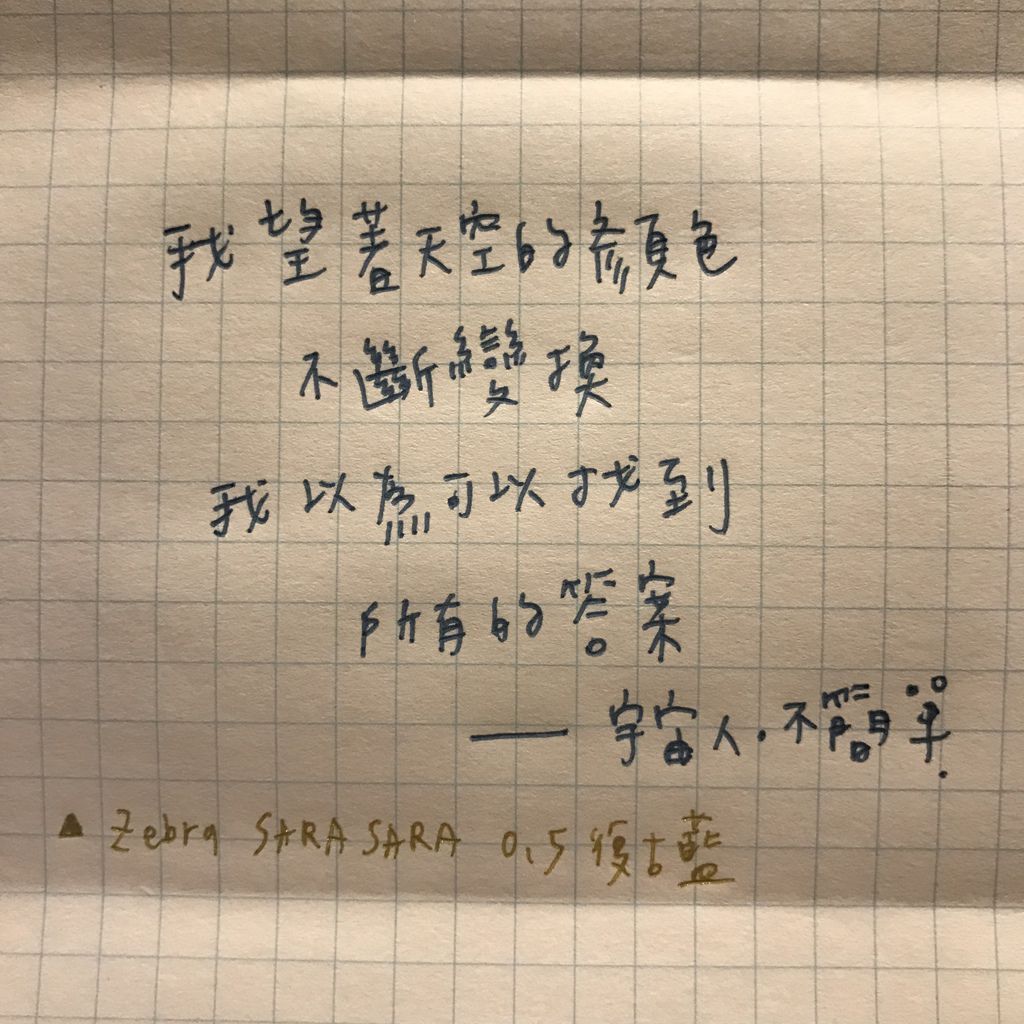 我望著天空的顏色
不斷變換
我以為可以找到
所有的答案
—— 宇宙人.不簡單.
▲ Zebra SARASARA 0.5 復古藍